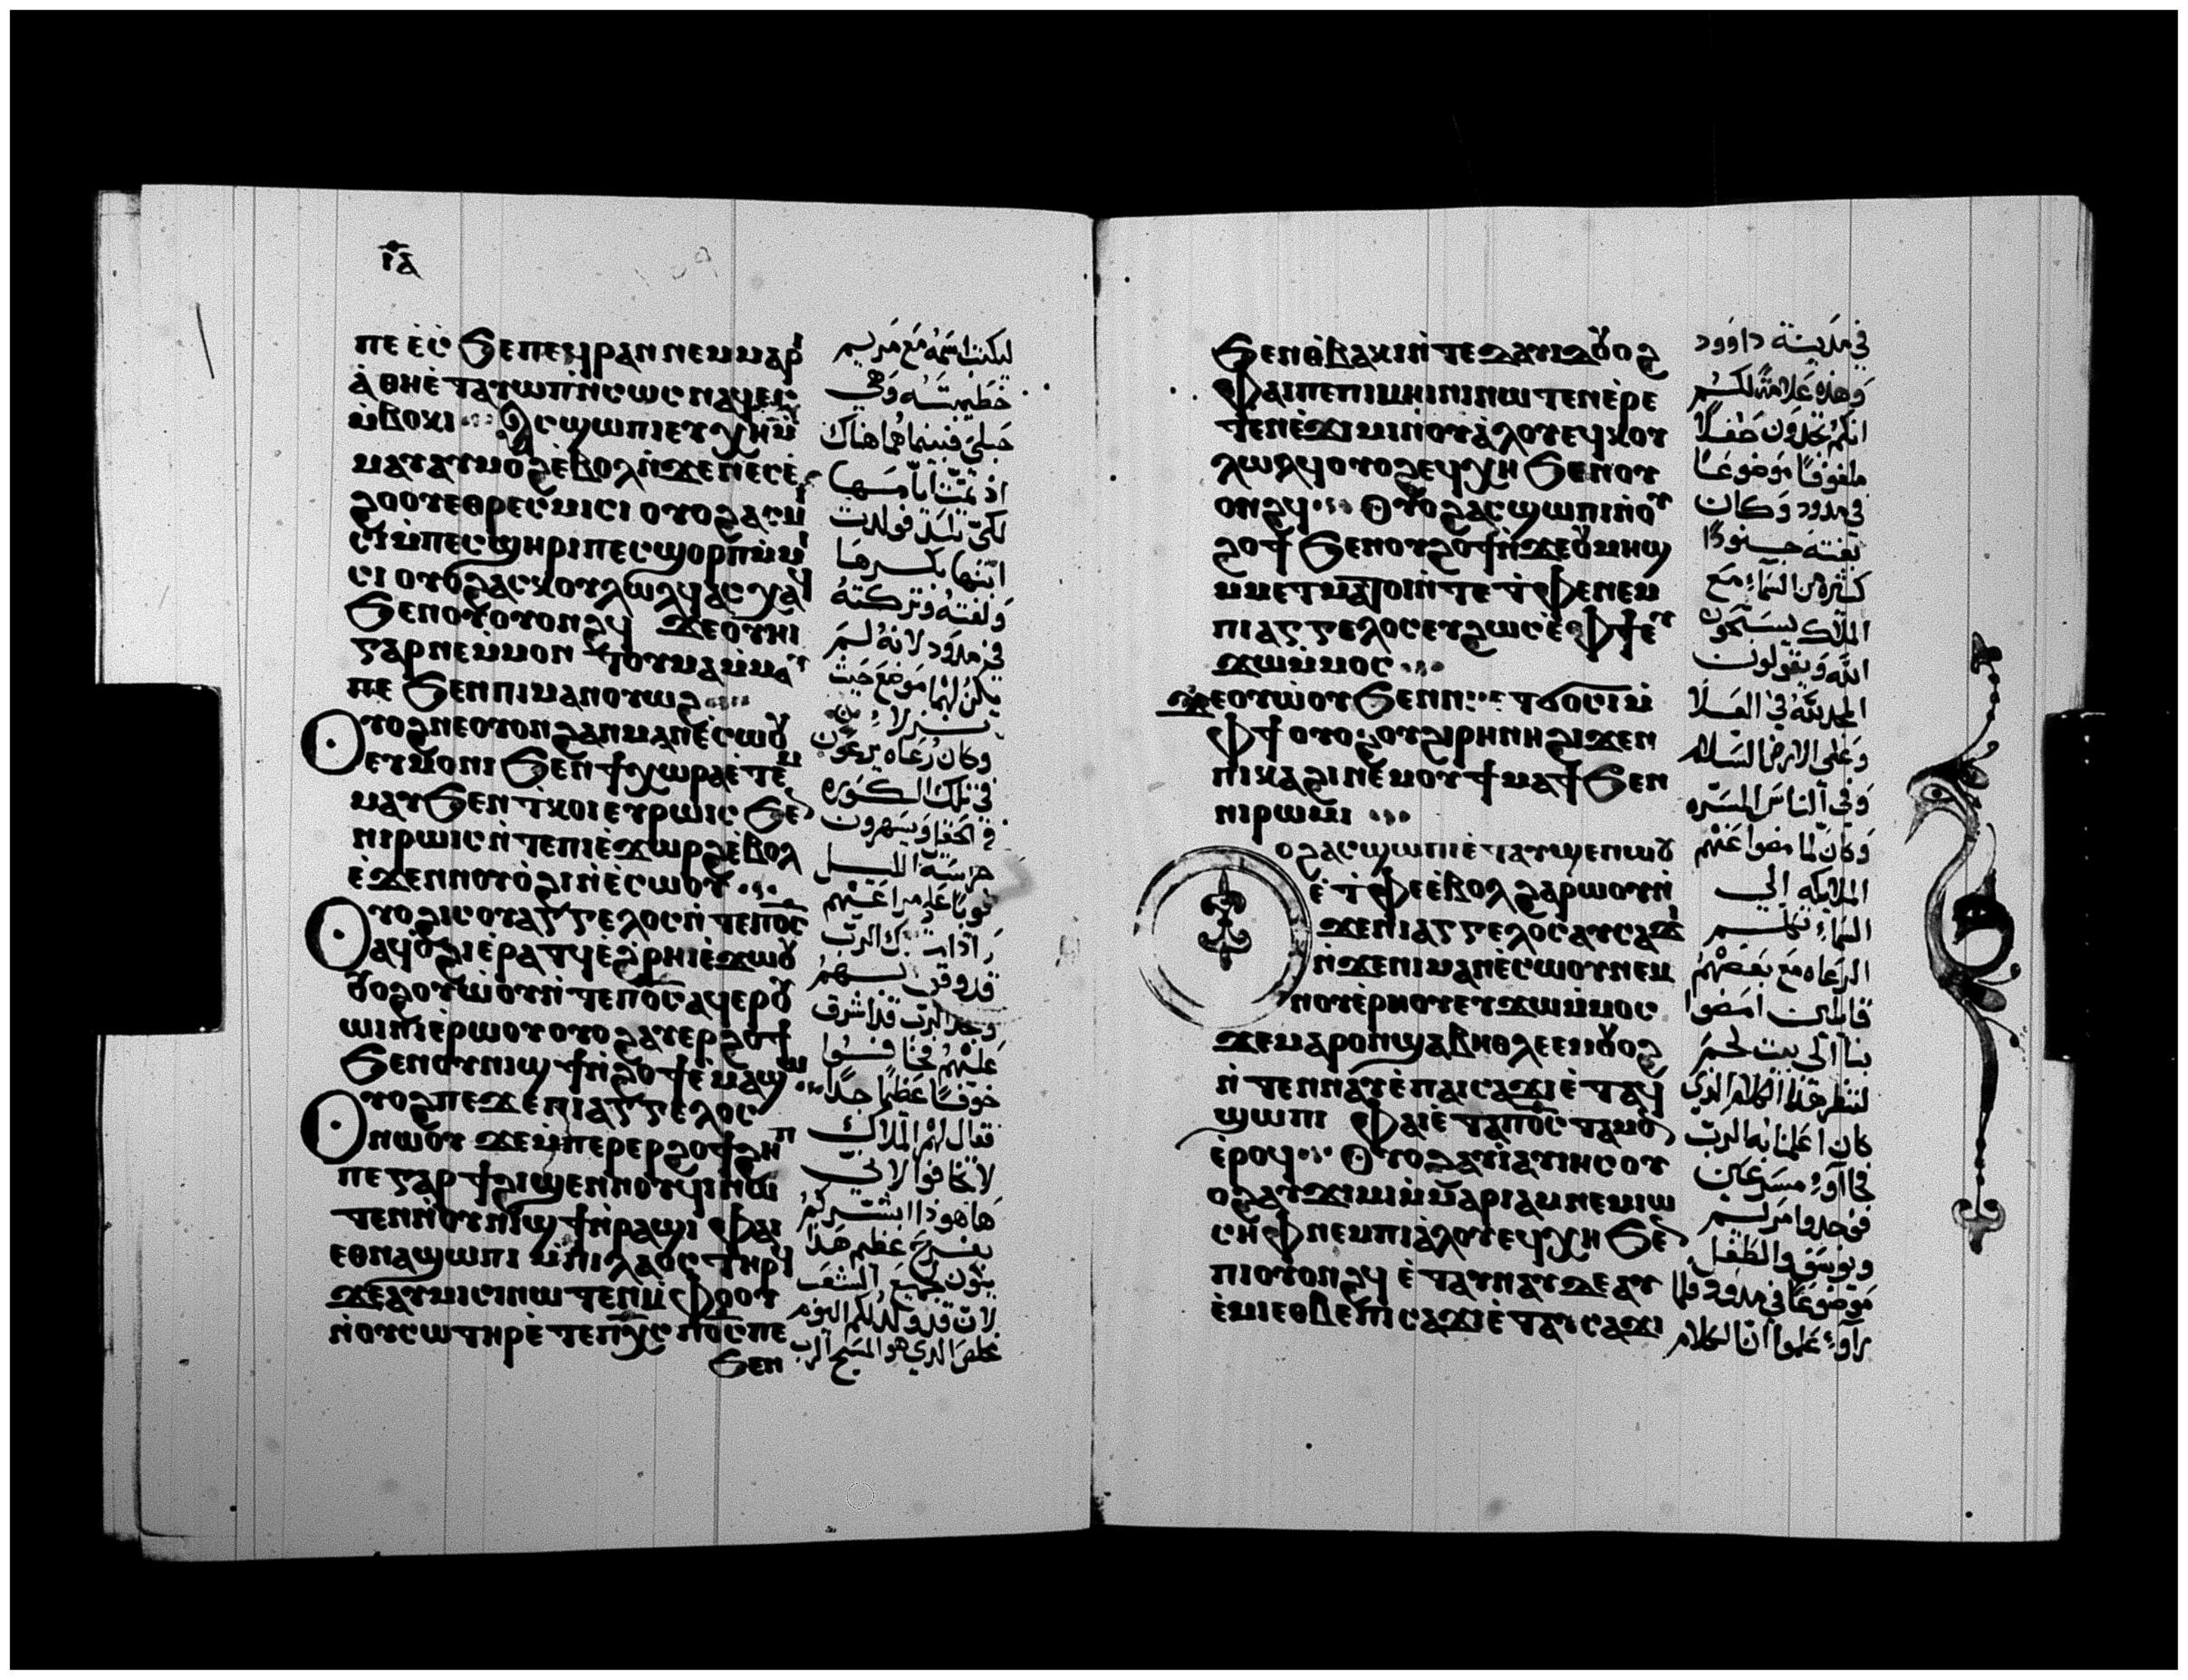 ⲓ̅ⲁ̅
ⲡⲉ ⲉ̀ⲥ̀ ϧⲉⲡⲉϥⲣⲁⲛ ⲛⲉⲙⲙⲁⲣ
ⲁ̀ ⲑⲏⲉ̀ⲧⲁⲩⲱⲡⲛ̀ⲥⲱⲥ ⲛⲁϥⲉⲣ
ⲙ̀ⲃⲟⲕⲓ ⲁⲥϣⲱⲡⲓ ⲉⲩⲭⲏⲙ̀
ⲙⲁⲩ ⲁⲩⲙⲟϩ ⲉ̀ⲃⲟⲗ ⲛ̀ϫⲉⲛⲉⲥⲉ̀
ϩⲟⲟⲩ ⲉⲑⲣⲉⲥⲙⲓⲥⲓ ⲟⲩⲟϩ ⲁⲥⲙ
ⲥⲓ ⲙ̀ⲡⲉⲥϣⲏⲣⲓ ⲡⲉⲥϣⲟⲣⲡ ⲙ̀ⲙ
ⲥⲓ ⲟⲩⲟϩ ⲁⲥⲕⲟⲩⲗⲱⲗϥ ⲁⲥⲭⲁϥ
ϧⲉⲛⲟⲩⲟⲩⲟⲛϩϥ ϫⲉⲟⲩⲏⲓ
ⲅⲁⲣ ⲛⲉⲙ̀ⲙⲟⲛ ⲧⲟⲩⲙⲁ ⲙ̀ⲙⲁⲩ
ⲡⲉ ϧⲉⲛⲡⲓⲙⲁⲛⲟⲩⲱϩ
ⲟⲩⲟϩ ⲛⲉⲟⲩⲟⲛ ϩⲁⲛⲙⲁⲛⲉ̀ⲥⲱⲟⲩ
ⲉⲩⲙⲟⲛⲓ ϧⲉⲛ ϯⲭⲱⲣⲁ ⲉ̀ⲧⲉⲙ
ⲙⲁⲩ ϧⲉⲛ ⲧ̀ⲕⲟⲓ ⲉⲩⲣⲱⲓⲥ ϧⲉⲛ
ⲛⲓⲣⲱⲓⲥ ⲛ̀ⲧⲉⲡⲓⲉ̀ϫⲱⲣϩ ⲉ̀ⲃⲟⲗ
ⲉ̀ϫⲉⲛ ⲛⲟⲩⲟ̀ϩⲓ ⲛ̀ⲉ̀ⲥⲱⲟⲩ
ⲟⲩⲟϩ ⲓⲥ ⲟⲩⲁⲅⲅⲉⲗⲟⲥ ⲛ̀ⲧⲉⲡⲟ̅ⲥ̅
ⲁϥⲟ̀ϩⲓ ⲉ̀ⲣⲁⲧϥ ⲉ̀ϩ̀ⲣⲏⲓ ⲉ̀ϫⲱⲟⲩ
ⲟⲩⲟϩ ⲟⲩⲱ̀ⲟⲩ ⲛ̀ⲧⲉⲡⲟ̅ⲥ̅ ⲁϥⲉⲣⲟⲩ
ⲱⲓⲛⲓ ⲉ̀ⲣⲱⲟⲩ ⲟⲩⲟϩ ⲁⲩⲉⲣϩⲟϯ
ϧⲉⲛⲟⲩⲛⲓϣϯ ⲛ̀ϩⲟϯ ⲉ̀ⲙⲁϣⲱ
ⲟⲩⲟϩ ⲡⲉϫⲉ ⲡⲓⲁⲅⲅⲉⲗⲟⲥ
ⲛⲱⲟⲩ ϫⲉ ⲙ̀ⲡⲉⲣⲉⲣϩⲟϯ ϩⲏⲡ
ⲡⲉ ⲅⲁⲣ ϯϩⲓϣⲉⲛⲛⲟⲩϥⲓ ⲛⲱ
ⲧⲉⲛ ⲛ̀ⲟⲩⲛⲓϣϯ ⲛ̀ⲣⲁϣⲓ ⲫⲁⲓ
ⲉⲑⲛⲁϣⲱⲡⲓ ⲙ̀ⲡⲓⲗⲁⲟⲥ ⲧⲏⲣϥ
ϫⲉ ⲁⲩⲙⲓⲥⲓ ⲛⲱⲧⲉⲛ ⲙ̀ⲫⲟⲟⲩ
ⲛ̀ⲟⲩⲥⲱⲧⲏⲣ ⲉ̀ⲧⲉ ⲡⲭ̅ⲥ̅ ⲡⲟ̅ⲥ̅ ⲡⲉ
ϧⲉⲛ
ليكتب اسمه مع مريم
خطيبته وهي
حبلى فبينما هما هناك
اذ تمت ايامها
لكي تلد فولدت
ابنها بكرها
ولفته وتركته
في مدود لانه لم
يكن لهما موضع حيث
وكان رعاه يرعون
في تلك الكوره
في الحقل ويسهرون
حراسة الليل
نوبا علي مراعيهم
واذا ملاك الرب
قد وقف بهم
ومجد الرب قد اشرق
عليهم فخافوا
خوفا عظيما جدا
فقال لهم الملاك
لا تخافوا لاني
ها هوذا ابشركم
بفرح عظيم هذا
يكون لجميع الشعب
لان قد ولد لكم اليوم
مخلص الذي هو المسيح الرب
ϧⲉⲛ ⲑ̀ⲃⲁⲕⲓ ⲛ̀ⲧⲉ ⲇⲁⲩⲓⲇ ⲟⲩⲟϩ
ⲫⲁⲓ ⲡⲉ ⲡⲓⲙⲏⲓⲛⲓ ⲛⲱⲧⲉⲛ ⲉ̀ⲣⲉ
ⲧⲉⲛⲉ̀ϫⲓⲙⲓ ⲛ̀ⲟⲩⲁ̀ⲗⲟⲩ ⲉϥⲕⲟⲩ
ⲗⲱⲗϥ ⲟⲩⲟϩ ⲉϥⲭⲏ ϧⲉⲛⲟⲩ
ⲟⲛϩϥ ⲟⲩⲟϩ ⲁⲥϣⲱⲡⲓ ⲛ̀ⲟⲩ
ϩⲟϯ ϧⲉⲛⲟⲩϩⲟϯ ⲛ̀ϫⲉⲟⲩⲙⲏϣ
ⲙ̀ⲙⲉⲧⲙⲁⲧⲟⲓ ⲛ̀ⲧⲉ ⲧ̀ⲫⲉ ⲛⲉⲙ
ⲡⲓⲁⲅⲅⲉⲗⲟⲥ ⲉⲩϩⲱⲥ ⲉ̀ⲫϯ ⲉⲩ
ϫⲱⲙ̀ⲙⲟⲥ
ϫⲉ ⲟⲩⲱ̀ⲟⲩ ϧⲉⲛ ⲛⲏⲉⲧϭⲟⲥⲓ ⲙ̀
ⲫϯ ⲟⲩⲟϩ ⲟⲩϩⲓⲣⲏⲛⲏ ϩⲓϫⲉⲛ
ⲡⲓⲕⲁϩⲓ ⲛⲉⲙ ⲟⲩϯⲙⲁϯ ϧⲉⲛ
ⲛⲓⲣⲱⲙⲓ
ⲟϩ ⲁⲥϣⲱⲡⲓ ⲉ̀ⲧⲁⲩϣⲉⲛⲱⲟⲩ
ⲉ̀ⲧ̀ⲫⲉ ⲉ̀ⲃⲟⲗ ϩⲁⲣⲱⲟⲩ ⲛ̀
ϫⲉⲛⲓⲁⲅⲅⲉⲗⲟⲥ ⲁⲩⲥⲁϫⲓ
ⲛ̀ϫⲉⲛⲓⲙⲁⲛⲉ̀ⲥⲱⲟⲩ ⲛⲉⲙ
ⲛⲟⲩⲉ̀ⲣⲏⲟⲩ ⲉⲩϫⲱⲙ̀ⲙⲟⲥ
ϫⲉ ⲙⲁⲣⲟⲛ ϣⲁ ⲃⲏⲑⲗⲉⲉⲙ ⲟⲩⲟϩ
ⲛ̀ⲧⲉⲛⲛⲁⲩ ⲉ̀ⲡⲁⲓⲥⲁϫⲓ ⲉ̀ⲧⲁϥ
ϣⲱⲡⲓ ⲫⲁⲓ ⲉ̀ⲧⲁⲡⲟ̅ⲥ̅ ⲧⲁⲙⲟⲛ
ⲉ̀ⲣⲟϥ ⲟⲩⲟϩ ⲁⲩⲓ̀ ⲁⲩⲓⲏⲥ ⲟⲩ
ⲟϩ ⲁⲩϫⲓⲙⲓ ⲙ̀ⲙⲁⲣⲓⲁⲙ ⲛⲉⲙ ⲓⲱ
ⲥⲏⲫ ⲛⲉⲙ ⲡⲓⲁ̀ⲗⲟⲩ ⲉϥⲭⲏ ϧⲉⲛ
ⲡⲓⲟⲩⲟⲛϩϥ ⲉ̀ⲧⲁⲩⲛⲁⲩ ⲇⲉ ⲁⲩ
ⲉ̀ⲙⲓ ⲉⲑⲃⲉ ⲡⲓⲥⲁϫⲓ ⲉ̀ⲧⲁⲩⲥⲁϫⲓ
في مدينة داوود
وهذه علامة لكم
انكم تجدون طفلا
ملفوفا موضوعا
في مدود وكان
بغتة جنودا
كثيره من السماء مع
الملاك يسبحون
الله ويقولون
المجد لله في العلا
وعلى الارض السلام
وفي الناس المسره
وكان لما مضوا عنهم
الملايكه الي
السماء تكلم
الرعاه مع بعضهم
قايلين امضوا
بنا الي بيت لحم
لننظر هذا الكلام الذي
كان اعلمنا به الرب
فجاآوا مسرعين
فوجدوا مريم
ويوسف والطفل
موضوعا في مدود فلما
رآوا علموا ان الكلام